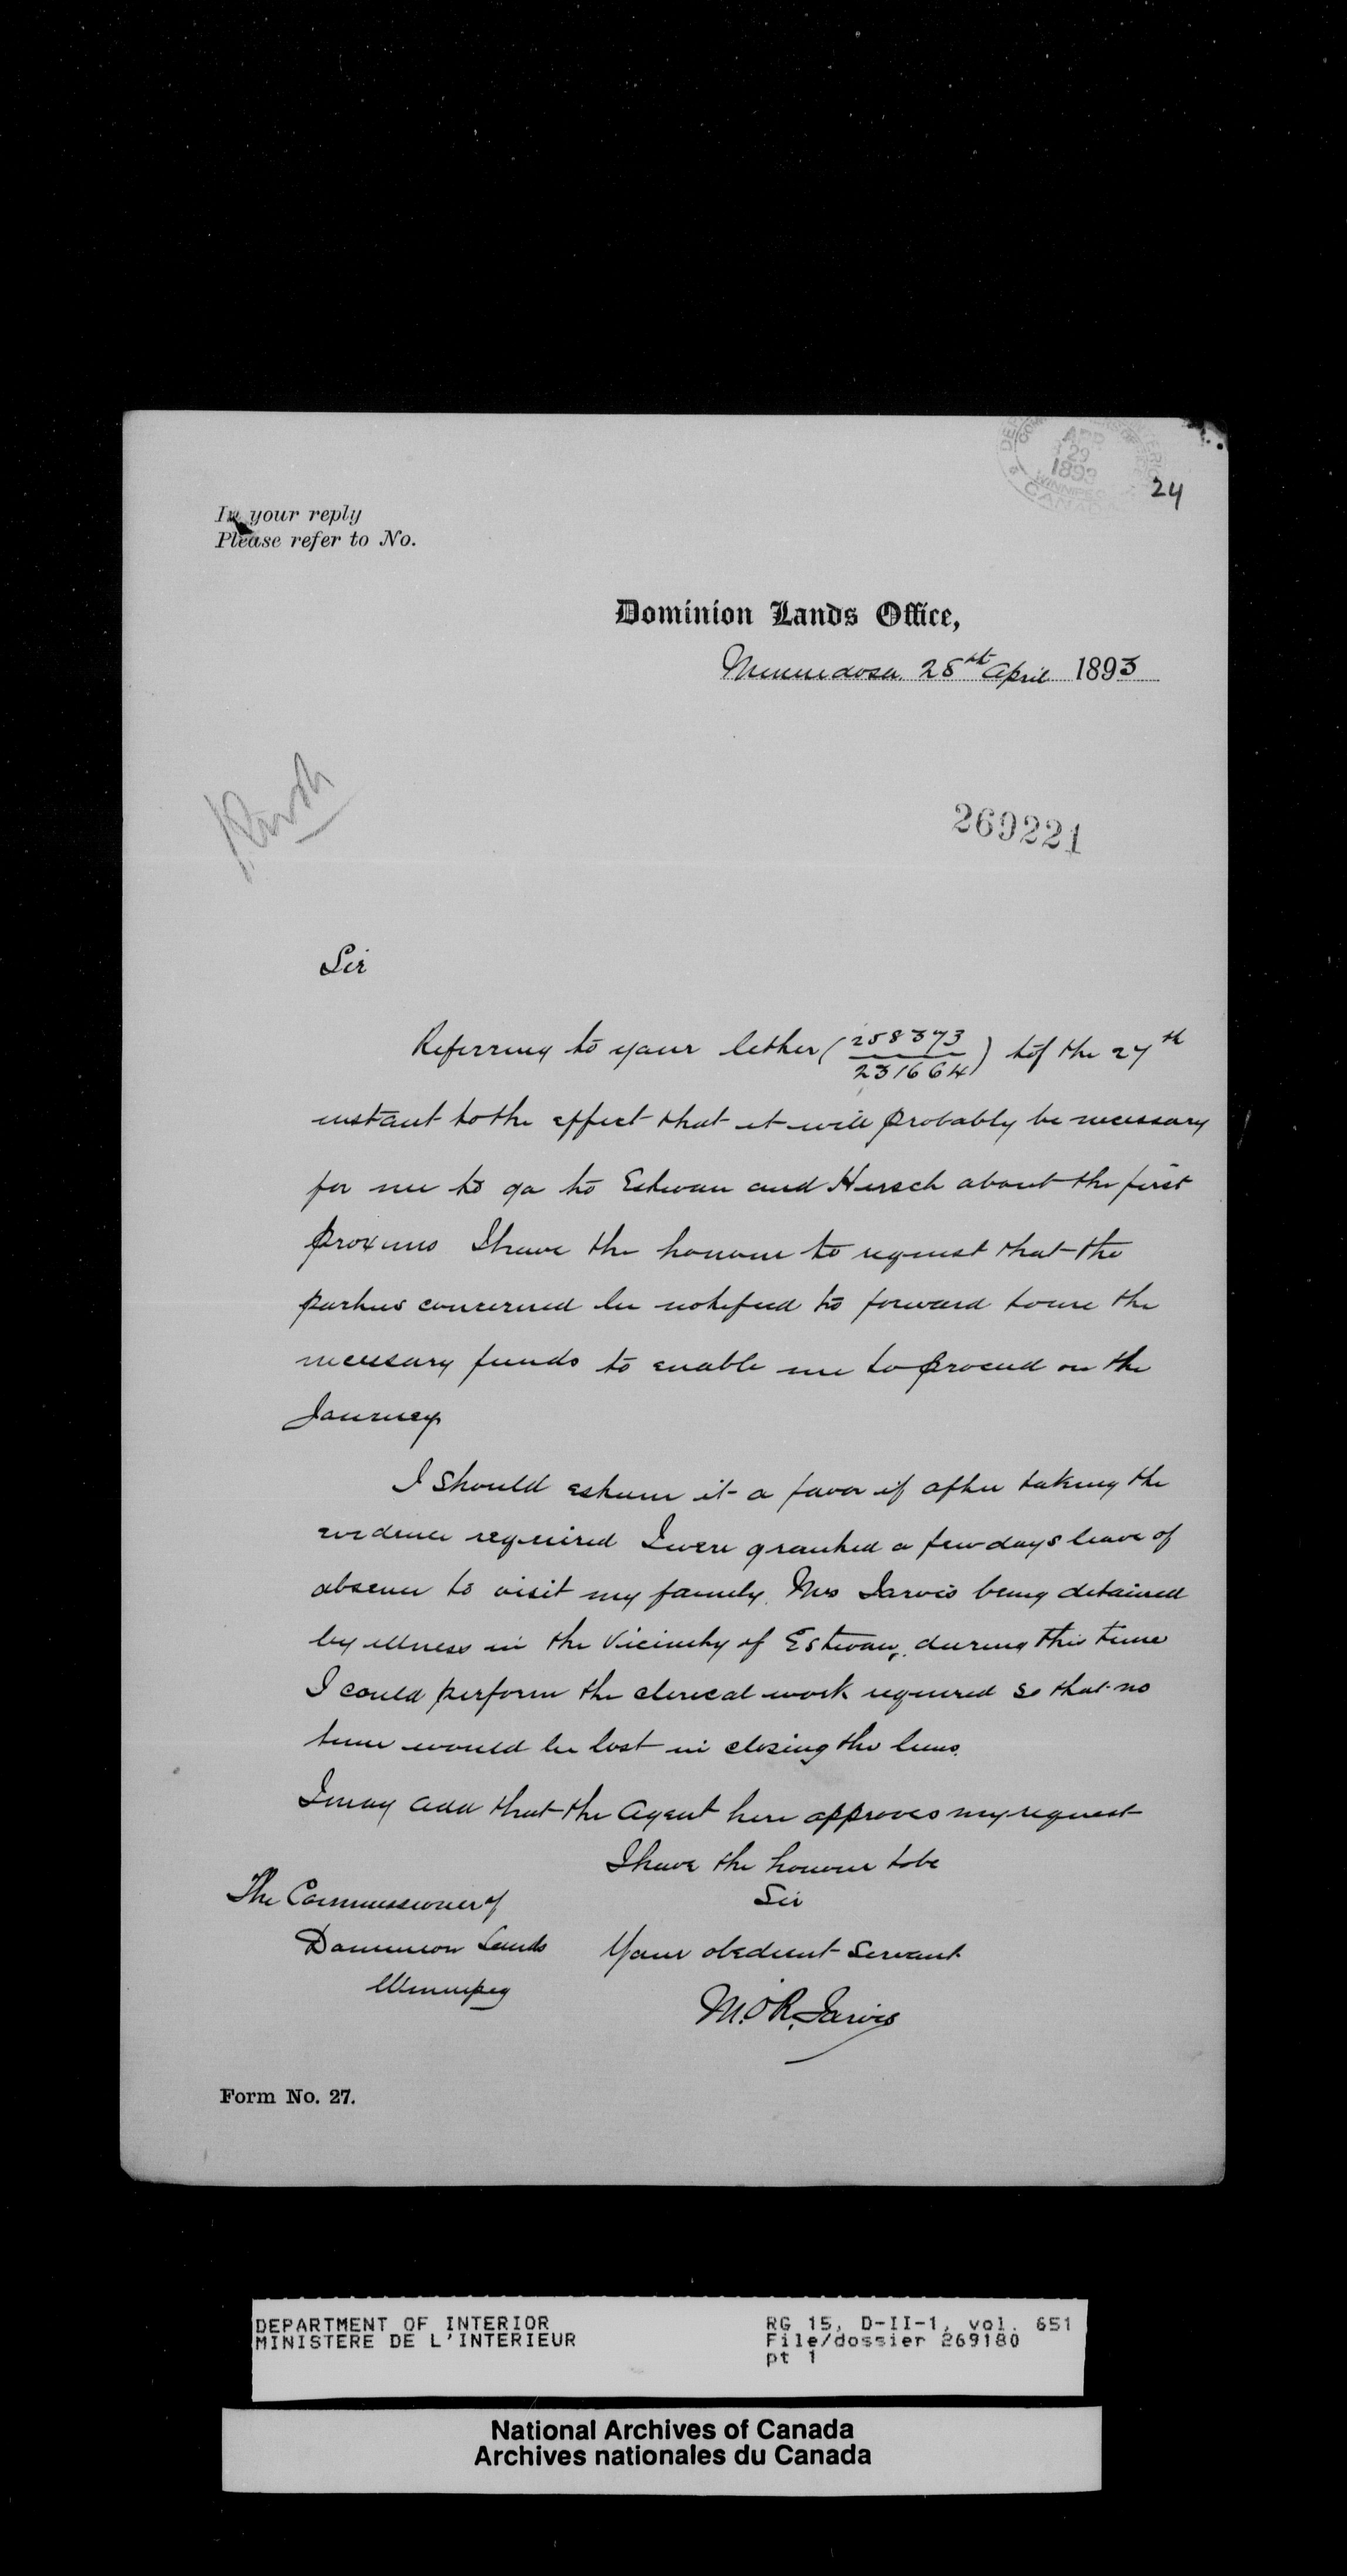 APR
29
1893
WINNIPEG
CANADA
24
In your reply
Please refer to No.
Dominion Lands Office,
Minnedosa 28th April 1893
269221
Sir
Referring to your letter (258373/231664) of the 27th
instant to the effect that it will probably be necessary
for me to go to Estevan and Hirsch about the first
proximo I have the honour to request that the
parties concerned be notified to forward to me the
necessary funds to enable me to proceed on the
Journey
I should esteem it a favor if after taking the
evidence required I were granted a few days leave of
absence to visit my family. Mrs Jarvis being detained
by illness in the Vicinity of Estevan, during this time
I could perform the clerical work required so that no
time would be lost in closing the liens.
I may add that the Agent here approves my request
I have the honour to be
Sir
Your obedient Servant
M.O'R. Jarvis
The Commissioner of
Dominion Lands
Winnipeg
Form No. 27.
DEPARTMENT OF INTERIOR
MINISTERE DE L'INTERIEUR
RG 15, D-II-1, vol. 651
File/dossier 269180
pt 1
National Archives of Canada
Archives nationales du Canada